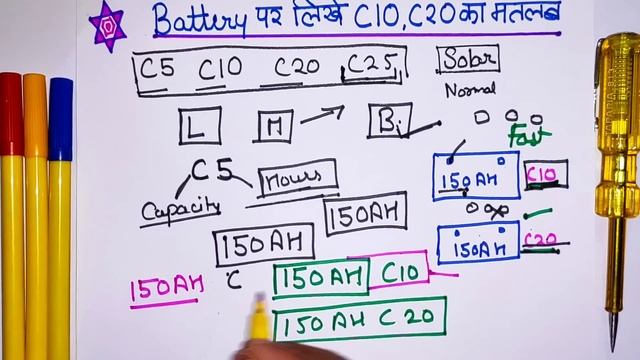 Battery पर लिखे C10, C20 का मतलब
C5 C10 C20 C25
Solar
Normal
L M Bi
Fast
C5
Hours
Capacity
150AH C10
150AH
150AH
150AH C20
150AH C
150AH C10
150AH C20